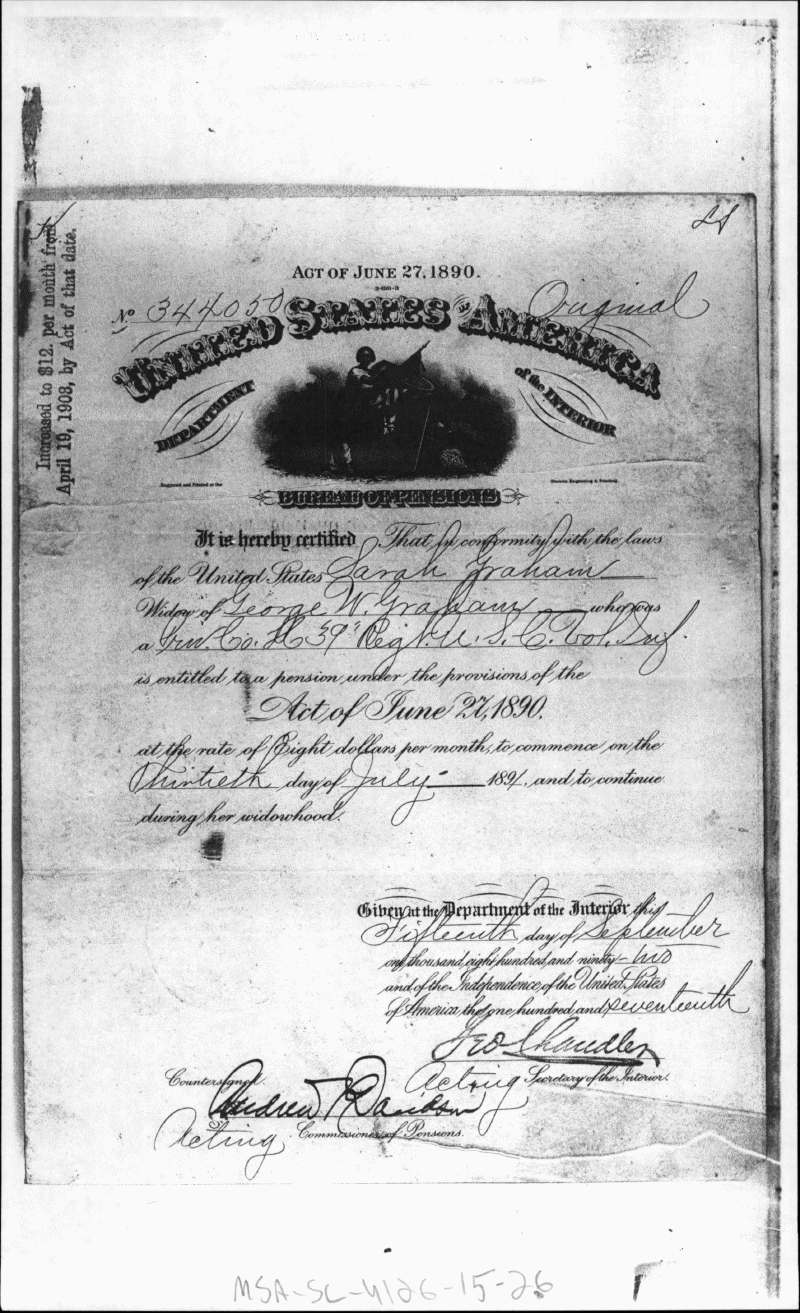 Increased to $12. per month from
April 19, 1908, by Act of that date.
ACT OF JUNE 27, 1890.
No 344050
Original
UNITED STATES OF AMERICA
DEPARTMENT of the INTERIOR
Engraved and Printed at the
Bureau Engraving & Printing
BUREAU OF PENSIONS
It is hereby certified That in conformity with the laws
of the United States Sarah Graham
Widow of George W. Graham who was
a Priv. Co. H 39" Regt. U. S. C. Vol. Inf.
is entitled to a pension under the provisions of the
Act of June 27, 1890.
at the rate of Eight dollars per month, to commence on the
Thirtieth day of July 1891, and to continue
during her widowhood.
Given at the Department of the Interior this
Fifteenth day of September
one thousand eight hundred and ninety-two
and of the Independence of the United States
of America the one hundred and seventeenth
Geo Chandler
Acting Secretary of the Interior.
Countersigned.
Andrew Davidson
Acting Commissioner of Pensions.
MSA-SC-4126-15-26